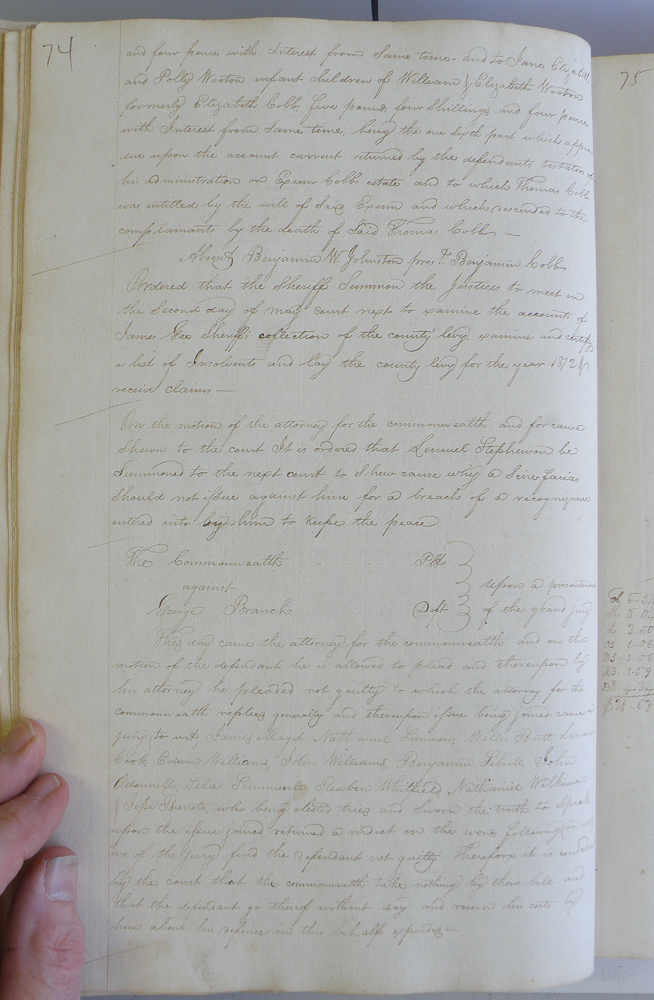 74
and four pence with Interest from Same time - and to Jane Elizabeth
and Polly Wooton infant children of William & Elizabeth Wooton
formerly Elizabeth Cobb five pounds four Shillings and four pence
with Interest from Same time, being the one Sixth part which appears
due upon the account current returned by the defendants testator of
his administration on Exum Cobbs estate and to which Thomas Cobb
was entitled by the will of Said Exum and which descended to the
complainants by the death of Said Thomas Cobb —
Absent Benjamin W Johnston prest. Benjamin Cobb
Ordered that the Sheriff Summon the Justices to meet on
the Second day of may court next to examine the accounts of
James Gee Sheriffs collection of the county levy, examine and certify
a list of Insolvents and lay the county levy for the year &
receive claims —
On the motion of the attorney for the commonwealth and for cause
Shewn to the court It is ordered that Lemuel Stephenson be
Summoned to the next court to Shew cause why a Scire facias
Should not issue against him for a breach of a recognizance
entered into by him to keepe the peace
The Commonwealth Plt
against upon a presentment
George Branch Deft of the grand jury
This day came the attorney for the commonwealth and on the
motion of the defendant he is allowed to plead and thereupon by
his attorney he pleaded not guilty to which the attorney for the
commonwealth replies generally and thereupon issue being joined came a
jury to wit, James Maget Nathaniel Simmons, Willis Britt,
Cook, Edwin Williams, John Williams, Benjamin John
Odonnelly, Silas Summerell Reuben Whitfield Nathaniel Wilkinson
& Jesse Barrett, who being elected tried and Sworn the truth to Speak
upon the issue joined returned a verdict in the words following
we of the jury find the defendant not guilty Therefore it is considered
by the court that the commonwealth take nothing by their bill and
that the defendant go thereof without day and recover his costs by
him about his defence in this behalf expended —
75